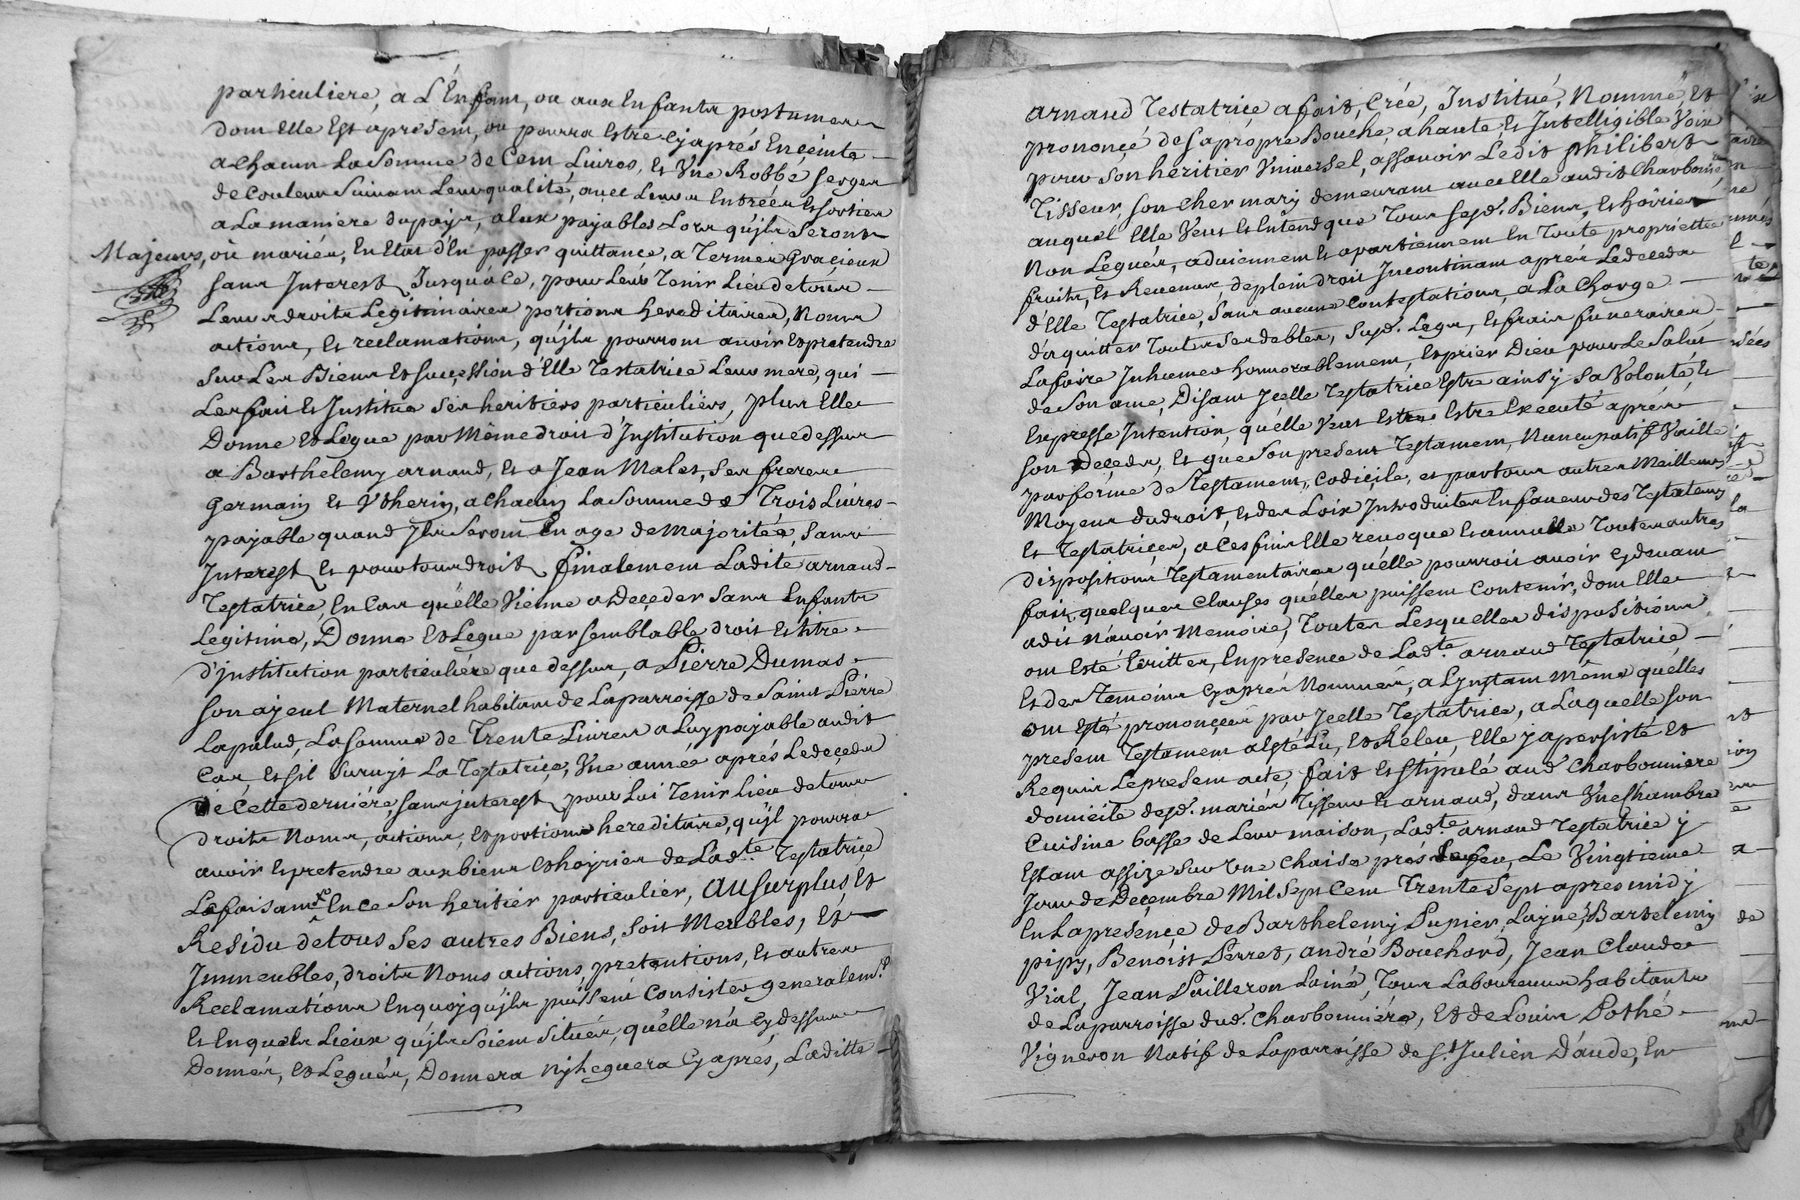 particuliere, a L'Enfant, ou aux Enfants postumes
dont Elle Est apresent, ou pourra Estre Cyaprés Enceinte
a Chacun La Somme de Cent Livres, Et Une Robbe serger
de Couleur Suivant Leur qualité, avec Leurs Entrées Et sorties
a La maniere du païs, a Eux payables Lors qu'jls Seront
Majeurs, où mariés, En Etat d'En passer quittance, a Termes Gracieux
sans Interest Jusqu'a ce, pour Leur Tenir Lieu de tous
Leurs droits Legitimaires portions hereditaires, Noms
actions, Et reclamations, qu'jls pourront avoir Et pretendre
sur Les Biens Et succession d'Elle Testatrice Leur mere, qui
Les fait Et Institue Ses heritiers particuliers, plus Elle
Donne Et Legue par Même droit d'Institution que dessus
a Barthelemy arnaud, Et a Jean Malet, Ses freres
Germain Et Utherin, a Chacun La Somme de Trois Livres
payable quand Jls Seront En age de Majoritée, Sans
Interest Et pour tout droit finalement Ladite arnaud
Testatrice, En Cas qu'elle Vienne a Deçeder Sans Enfants
Legitime, Donne Et Legue par semblable droit Et titre
d'jnstitution particuliére que dessus, a Pierre Dumas
son ayeul Maternel habitant de La parroisse de Saint Pierre
Lapalud, La Somme de Trente Livres a Luy payable audit
Cas Et s'il Survit La Testatrice, Une année aprés Le deçeds
de Cette derniére, sans jnterest pour Lui Tenir Lieu de tous
droits Noms, actions, Et portions hereditaire, qu'jl pourra
avoir Et pretendre aux biens Et hoyrie de Lad.te Testatrice
Le faisant En ce Son heritier particulier, Au Surplus Et
Residu de tous Ses autres Biens, Soit Meubles, Et
Jmmeubles, droits Noms actions, pretentions, Et autres
Reclamations En quoy qu'jls puissent Consister generalem.t
Et En quels Lieux qu'jls Soient Situés, qu'elle n'a Cy dessus
Donnés, Et Legués, Donnera ny Leguera Cyaprés, Laditte
arnaud Testatrice a fait, Créé, Institué, Nommé, Et
prononçé de sa propre Bouche, a haute, Et Intelligible Voix
pour Son héritier Universel, assavoir Ledit philibert
Tisseur, son cher mary demeurant avec Elle audit Charbonnie
auquel Elle Veut Et Entend que Tous sesd. Biens, Et hoirie
Non Legués, adviennent Et apartiennent En Toute proprietée
fruits, Et Revenus, de plein droit Jncontinant aprés Le deçeds
d'Elle Testatrice, Sans aucune Contestations, a La Charge
d'aquitter Toutes Ses debtes, susd. Legs, Et frais funeraires,
La faire Inhumer honnorablement, Et prier Dieu pour Le Salut
de Son ame, Disant Jcelle Testatrice Estre ainsy Sa Volonté, Et
Expresse Intention, qu'elle Veut Estre Executé aprés
son Deçeds, Et que Son present Testament, Nuncupatif Vaille
par forme de Testament, Codicile, et par tous autres Meilleurs
Moyens du droit, Et des Loix Introduites En faveur des Testateurs
Et Testatrices, a Ces fins Elle revoque Et annulle Toutes autres
dispositions Testamentaires qu'elle pourroit avoir Cy devant
fait, quelques Clauses qu'elles puissent Contenir, dont Elle
a dit n'avoir Memoire, Toutes Lesquelles dispositions
ont Esté Ecrittes, En présence de Lad.te arnaud Testatrice
Et des Temoins Cyaprés Nommés, a Lynstant Même qu'elles
ont Esté prononçées par Jcelle Testatrice, a Laquelle son
present Testament a Esté Lû, Et Releu, Elle y a persisté Et
Requis Le present acte, fait Et Stipulé aud. Charbonniere
domicile desd. mariés Tisseur Et arnaud, dans Une Chambre
Cuisine basse de Leur maison, Lad.te arnaud Testatrice y
Estant assize Sur Une Chaise prés du feu, Le Vingtieme
Jour de Deçembre Mil Sept Cent Trente Sept apres midy
En La présençe de Barthelemy Punier, Lainé, Bartelemy
pipy, Benoist Perret, André Bouchard, Jean Claude
Vial, Jean Pailleron Lainé, Tous Laboureurs habitants
de La parroisse dud. Charbonniére, Et de Louis Pothé
Vigneron Natif de La parroisse de S.t Julien D'aude, En